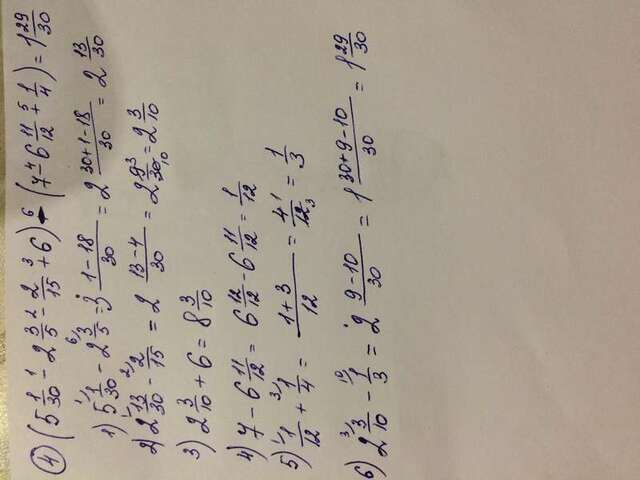 ④ (5 1/30 - 2 3/5 - 2/15 + 6) - (7 - 6 11/12 + 1/4) = 1 29/30
1) 5 1/30 - 2 3/5 = 3 (1-18)/30 = 2 (30+1-18)/30 = 2 13/30
2) 2 13/30 - 2/15 = 2 (13-4)/30 = 2 9/30 = 2 3/10
3) 2 3/10 + 6 = 8 3/10
4) 7 - 6 11/12 = 6 12/12 - 6 11/12 = 1/12
5) 1/12 + 1/4 = (1+3)/12 = 4/12 = 1/3
6) 2 3/10 - 1/3 = 2 (9-10)/30 = 1 (30+9-10)/30 = 1 29/30